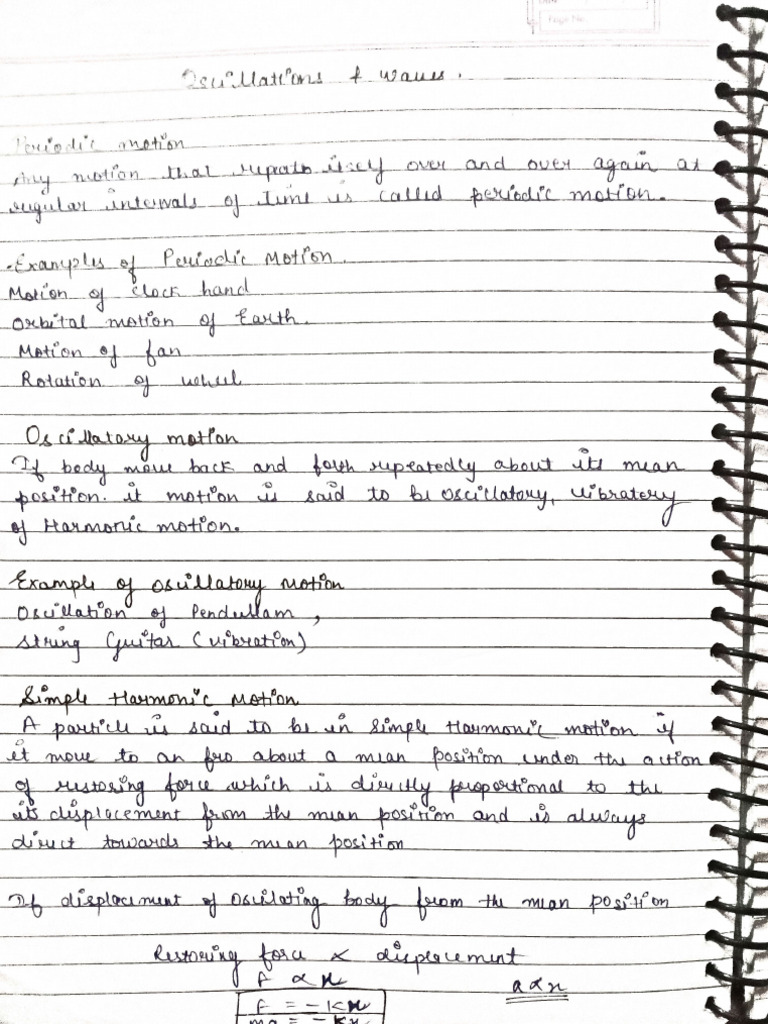 Page No.
Oscillations & waves.
Periodic motion
Any motion that repeats itself over and over again at
regular intervals of time is called periodic motion.
.Examples of Periodic Motion.
Motion of clock hand
Orbital motion of Earth.
Motion of fan
Rotation of wheel
Oscillatory motion
If body move back and forth repeatedly about its mean
position. it motion is said to be oscillatory, vibratery
of Harmonic motion.
Example of oscillatory Motion
Oscillation of Pendullam ,
string Guitar (vibration)
Simple Harmonic Motion
A particle is said to be in Simple Harmonic motion if
it move to an fro about a mean position under the action
of restoring force which is directly proportional to the
its displacement from the mean position and is always
direct towards the mean position
If displacement of oscilating body from the mean position
Restoring force ∝ displacement
f ∝ x
a ∝ x
f = -Kx
ma = -Kx